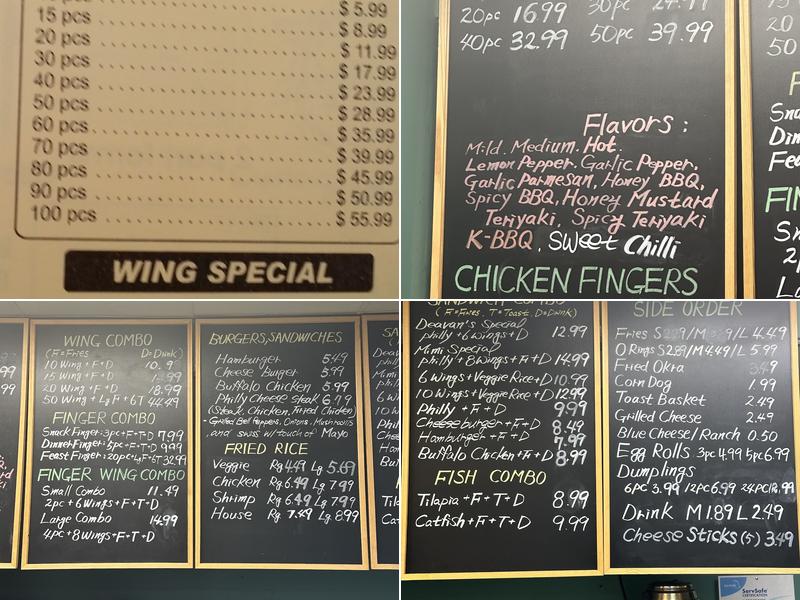 $ 5.99
15 pcs $ 8.99
20 pcs $ 11.99
30 pcs $ 17.99
40 pcs $ 23.99
50 pcs $ 28.99
60 pcs $ 35.99
70 pcs $ 39.99
80 pcs $ 45.99
90 pcs $ 50.99
100 pcs $ 55.99
WING SPECIAL
20pc 16.99 30pc 24.99
40pc 32.99 50pc 39.99
Flavors :
Mild. Medium. Hot.
Lemon Pepper. Garlic Pepper.
Garlic Parmesan, Honey BBQ,
Spicy BBQ, Honey Mustard
Teriyaki, Spicy Teriyaki
K-BBQ, Sweet Chilli
CHICKEN FINGERS
WING COMBO
(F=Fries D=Drink)
10 Wing+F+D
15 Wing+F+D
20 Wing+F+D 18.99
50 Wing+LgF+6T 44.49
FINGER COMBO
Snack Finger:3pc+F+T+D 7.99
Dinner Finger:5pc+F+T+D 9.99
Feast Finger:20pc+LgF+6T 32.99
FINGER WING COMBO
Small Combo 11.49
2pc+6Wings+F+T+D
Large Combo 14.99
4pc+8Wings+F+T+D
BURGERS, SANDWICHES
Hamburger 5.49
Cheese Burger 5.99
Buffalo Chicken 5.99
Philly Cheese Steak 6.99
(Steak, Chicken, Fried Chicken)
- Grilled Bell Peppers, Onions, Mushrooms
, and swiss w/touch of Mayo
FRIED RICE
Veggie Rg 4.49 Lg 5.69
Chicken Rg 6.49 Lg 7.99
Shrimp Rg 6.49 Lg 7.99
House Rg 7.49 Lg 8.99
SANDWICH COMBO
(F=Fries, T=Toast, D=Drink)
Deavan's Special
philly+6wings+D 12.99
Mimi Special
philly+8wings+F+D 14.99
6 Wings+Veggie Rice+D 10.99
10 Wings+Veggie Rice+D 12.99
Philly +F+D 9.99
Cheeseburger+F+D 8.49
Hamburger+F+D 7.99
Buffalo Chicken+F+D 8.99
FISH COMBO
Tilapia+F+T+D 8.99
Catfish+F+T+D 9.99
SIDE ORDER
Fries S /M /L 4.49
O Rings S 2.99/M 4.49/L 5.99
Fried Okra 3.49
Corn Dog 1.99
Toast Basket 2.49
Grilled Cheese 2.49
Blue Cheese/Ranch 0.50
Egg Rolls 3pc 4.99 5pc 6.99
Dumplings
6PC 3.99 12pc 6.99 24PC 12.99
Drink M 1.89 L 2.49
Cheese Sticks (5) 3.49
ServSafe
CERTIFICATION